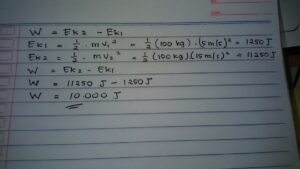 W = Ek2 - Ek1
Ek1 = 1/2 . m v1² = 1/2 (100 kg) . (5 m/s)² = 1250 J
Ek2 = 1/2 . m v2² = 1/2 (100 kg) (15 m/s)² = 11250 J
W = Ek2 - Ek1
W = 11250 J - 1250 J
W = 10.000 J